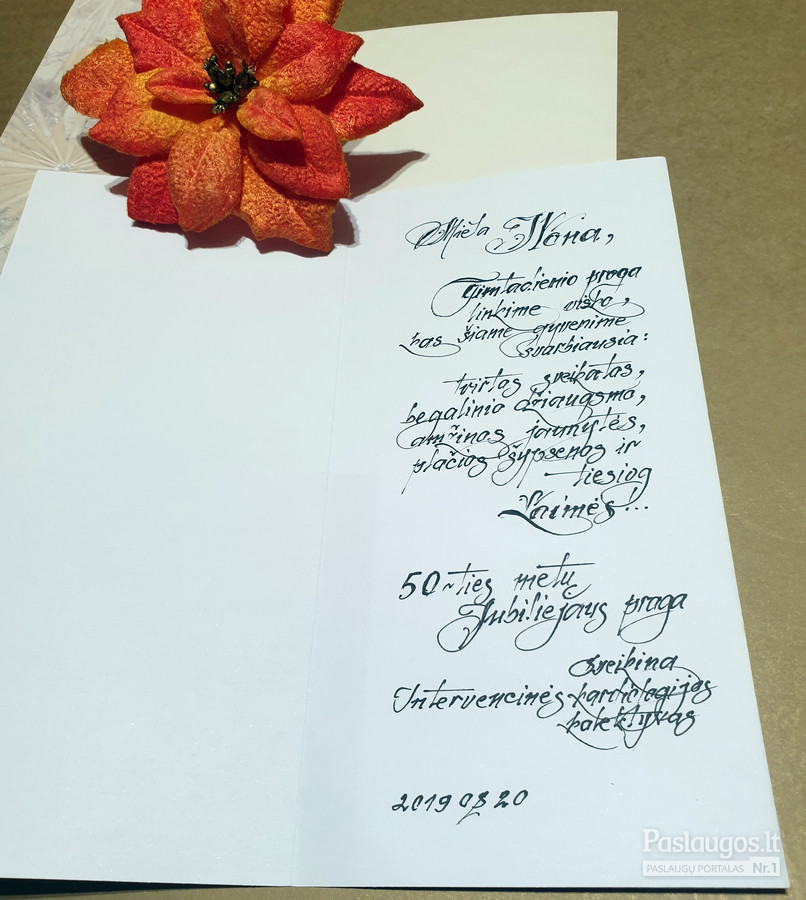 Miela Nona,
Gimtadienio proga
linkime visko,
kas šiame gyvenime
svarbiausia:
tvirtos sveikatos,
begalinio džiaugsmo,
amžinos jaunytės,
plačios šypsenos ir
tiesiog
Laimės!...
50~ties metų
Jubiliejaus proga
sveikina
Intervencinės kardiologijos
kolektyvas
2019 08 20
Paslaugos.lt
PASLAUGŲ PORTALAS Nr.1